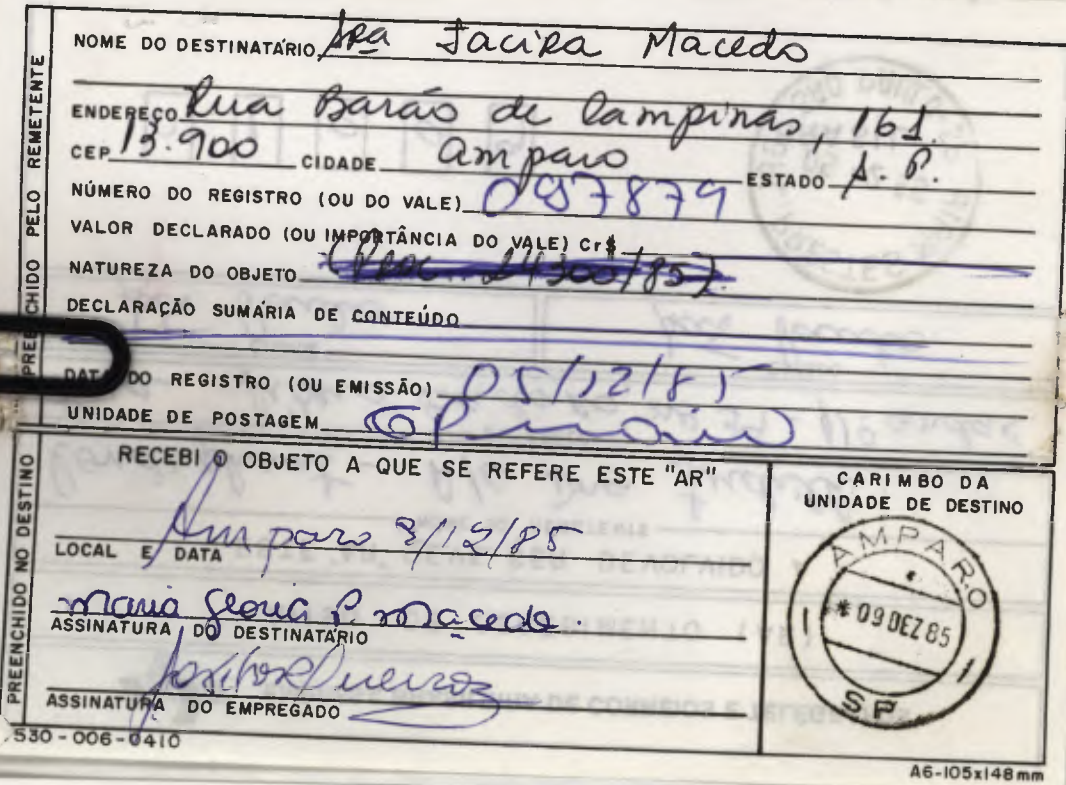 PREENCHIDO PELO REMETENTE
NOME DO DESTINATÁRIO Sra Jacira Macedo
ENDEREÇO Rua Barão de Campinas, 161.
CEP 13.900 CIDADE Amparo ESTADO S. P.
NÚMERO DO REGISTRO (OU DO VALE) 097879
VALOR DECLARADO (OU IMPORTÂNCIA DO VALE) Cr$
NATUREZA DO OBJETO (Proc. 24300/85)
DECLARAÇÃO SUMÁRIA DE CONTEÚDO
DATA DO REGISTRO (OU EMISSÃO) 05/12/85
UNIDADE DE POSTAGEM
PREENCHIDO NO DESTINO
RECEBI O OBJETO A QUE SE REFERE ESTE "AR"
Amparo /12/85
LOCAL E DATA
Maria Gloria P. Macedo.
ASSINATURA DO DESTINATÁRIO
ASSINATURA DO EMPREGADO
CARIMBO DA
UNIDADE DE DESTINO
AMPARO
* 09 DEZ 85
SP
530-006-0410
A6-105x148mm